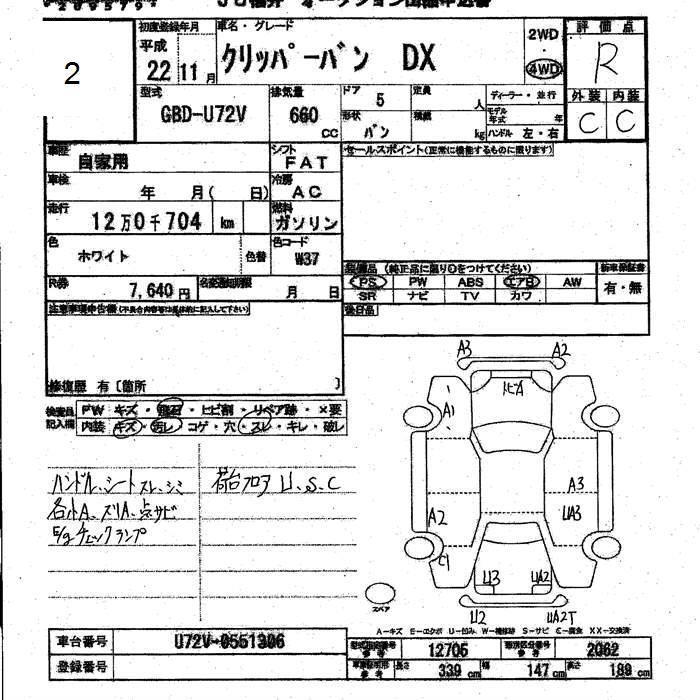 2
初度登録年月
平成
22 11月
車名・グレード
クリッパーバン DX
2WD
4WD
評価点
R
外装 内装
C C
型式
GBD-U72V
排気量
660
CC
ドア
5
形状
バン
定員
人
積載
kg
ディーラー・並行
モデル年式 年
ハンドル 左・右
車歴
自家用
シフト
FAT
車検
年 月( 日)
冷房
AC
走行
12万0千704 km
燃料
ガソリン
色
ホワイト
色替
色コード
W37
R券
7,640円
名変期限
月 日
セールスポイント(正常に機能するものに限ります)
装備品(純正品に限り○をつけてください)
新車保証書
PS PW ABS エアB AW
SR ナビ TV カワ
有・無
後日品
注意事項申告欄(不具合内容等は具体的に記入して下さい)
修復歴 有〔箇所 〕
検査員記入欄
FW キズ・飛石・ヒビ割・リペア跡・×要
内装 キズ・汚レ・コゲ・穴・スレ・キレ・破レ
ハンドル、シートスレ、シミ
各小A、スリA、点サビ
E/gチェックランプ
荷台フロア U、S、C
A3 A2
ヒA
A1
A3
UA3
A2
C1
U3 UA2
U2 UA2T
スペア
A−キズ E−エクボ U−凹み W−補修跡 S−サビ C−腐食 XX−交換済
車台番号
U72V-0551306
登録番号
型式指定番号 参考
12705
類別区分番号 参考
2062
長さ 339 cm 幅 147 cm 高さ 189 cm